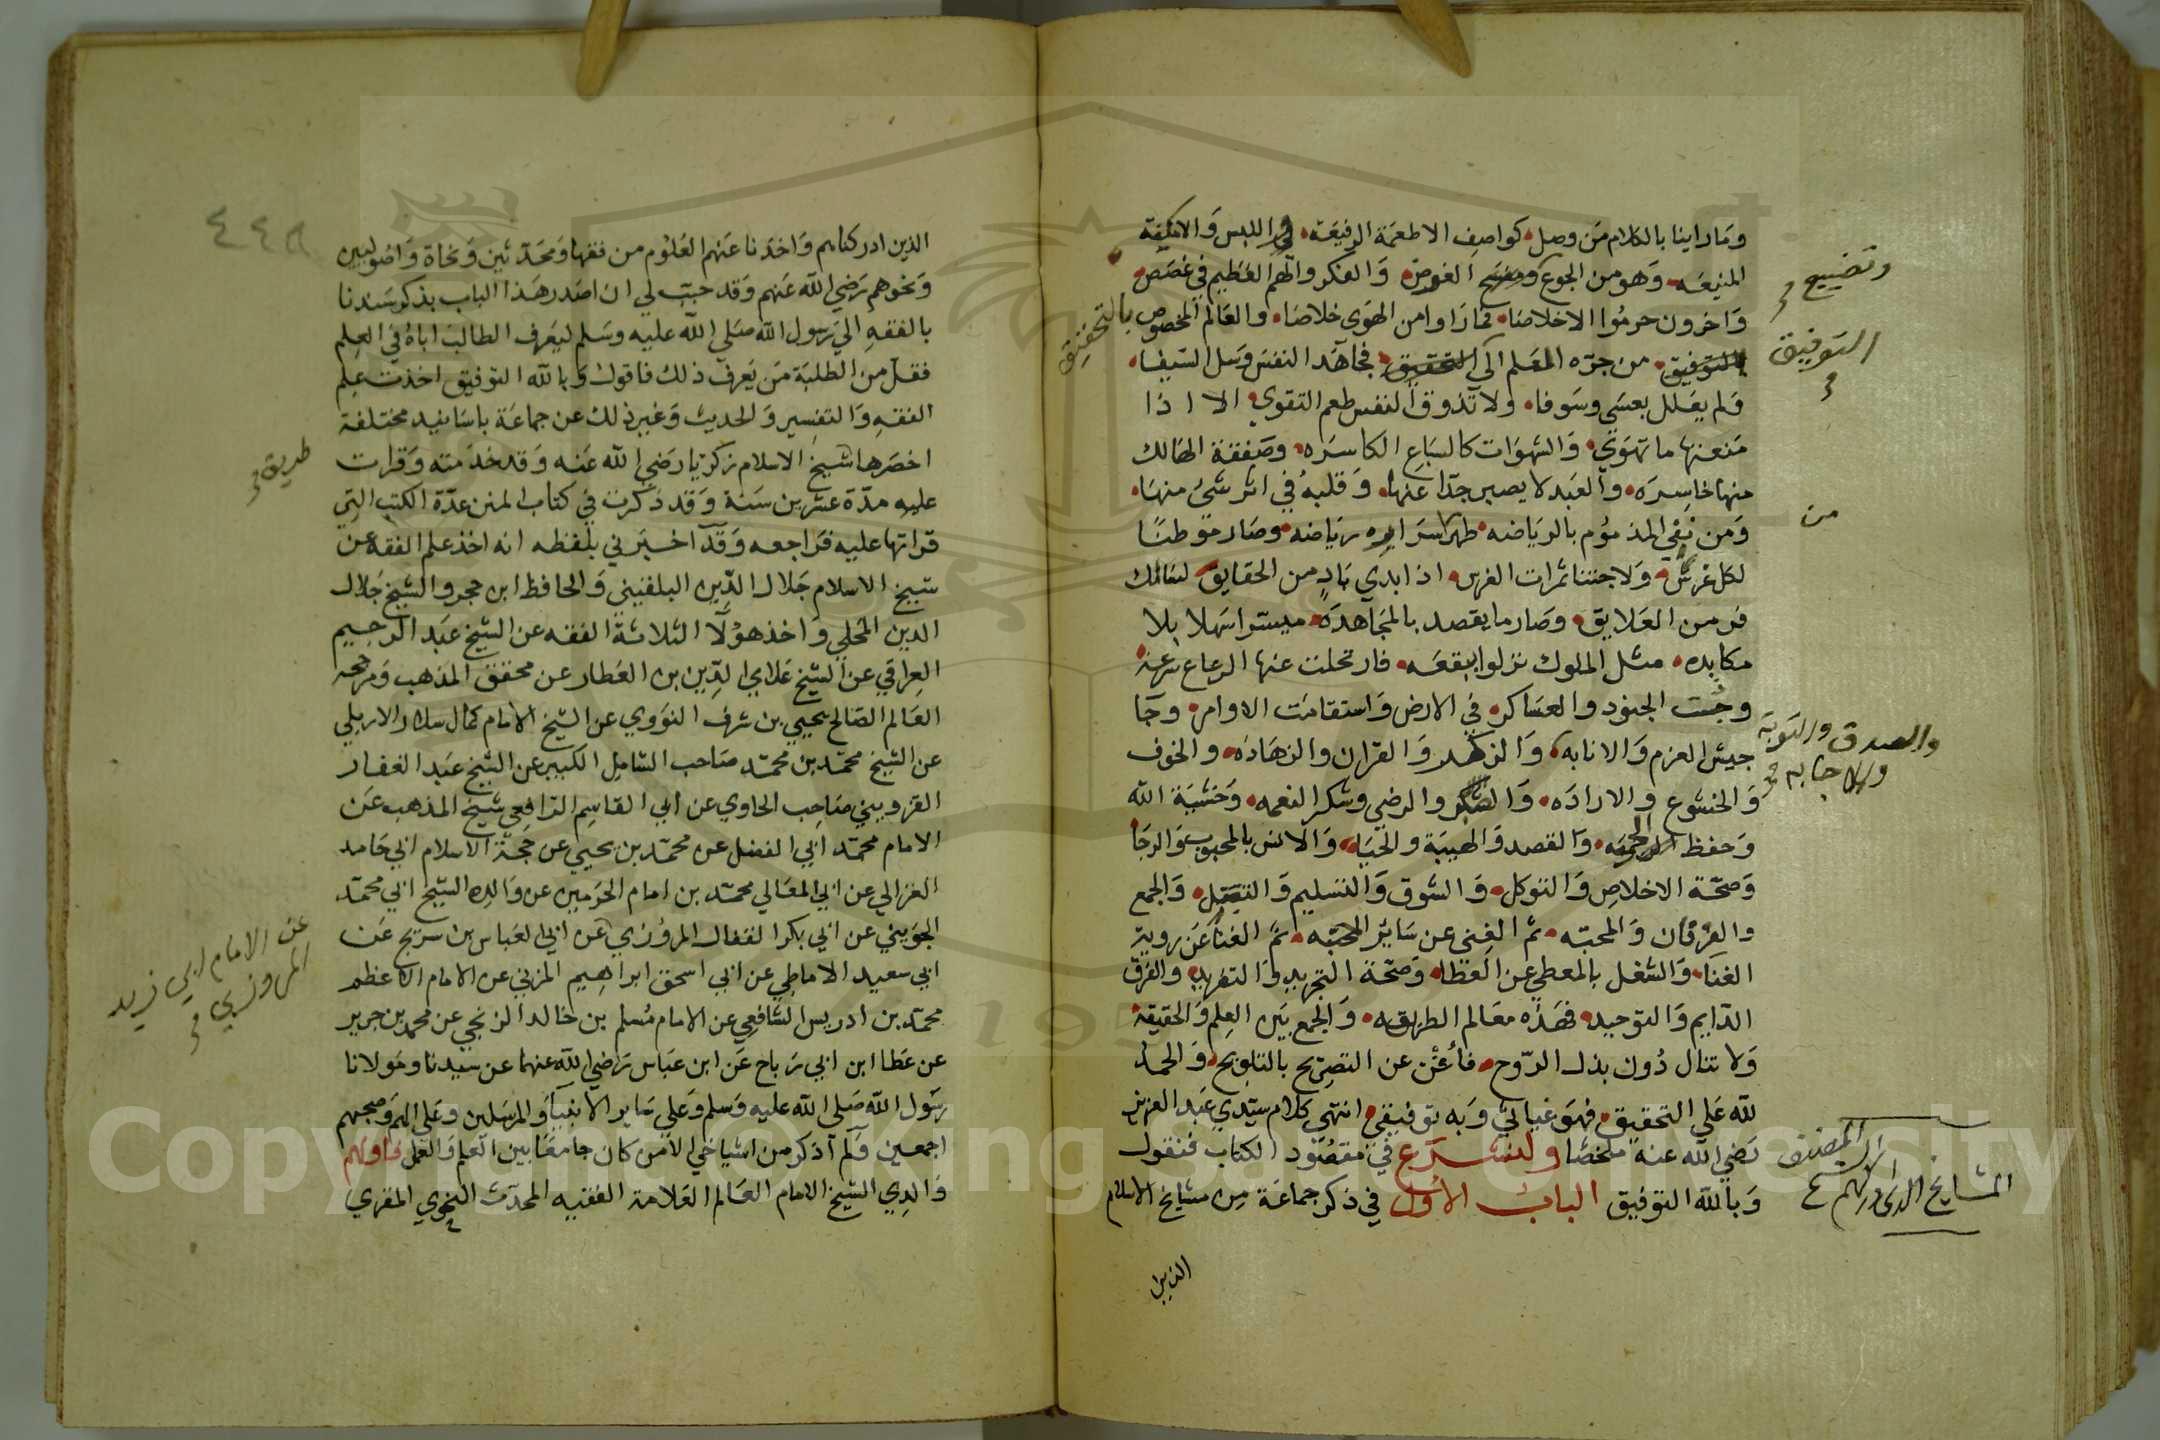 وما راينا بالكلام من وصل كواصف الاطعمة الرفيعه في اللبس والاكيفة
المنيعه وهو من الجوع الغوص والفكر والهم العظيم في غصص
واخرون حرموا الاخلاصا فما راوا من الهوى خلاصا والعالم المخصوص بالتحقيق
من جره العلم الى فجاهد النفس وسل السيفا
ولم يعلل بعسى وسوفا ولا تذوق النفس طعم التقوي الا اذا
منعنها ما تهوي والشهوات كالسباع الكاسره وصفقة الهالك
منها خاسره والعبد لا يصير جدا عنها وقلبه في اثر شئ منها
ومن نفى المذموم بالرياضه طهر اسرايره رياضه وصار موطنا
لكل غرس ولاجتنا ثمرات الغرس اذا بدي باد من الحقايق لسالك
فر من العلايق وصار ما يقصد بالمجاهده ميسرا سهلا بلا
مكابده مثل الملوك نزلوا ببقعه فارتحلت عنها الرعاع سرعة
وجست الجنود والعساكر في الارض واستقامت الاوامر وجا
جيش العزم والانابه والزهد والقران والزهاده والخوف
والخشوع والاراده والشكر والرضي وشكر النعمه وخشية الله
وحفظ الحرمه والقصد والهيبة والحيا والانس بالمحبوب والرجا
وصحة الاخلاص والتوكل والشوق والتسليم والتبتل والجمع
والفرقان والمحبه ثم الغني عن ساير المحبه ثم الغنا عن روية
الغنا والشغل بالمعطي عن العطا وصحة التجريد والتفريد والفرق
الدايم والتوحيد فهذه معالم الطريقه والجمع بين العلم والحقيقة
ولا تنال دون بذل الروح فاغن عن التصريح بالتلويح والحمد
لله علي التحقيق فهو غياثي وبه توفيقي انتهي كلام سيدي عبد العزيز
رضي الله عنه ملخصا ولنشرع في مقصود الكتاب فنقول
وبالله التوفيق الباب الاول في ذكر جماعة من مشايخ الاسلام
الذين
وتضييع
التوفيق
من
والصدق والتوبة
والاجابه
المشايخ الذي ادركهم
الذين ادركناهم واخذنا عنهم العلوم من فقها ومحدثين ونحاة واصوليين
ونحوهم رضي الله عنهم وقد حبب لي ان اصدر هذا الباب بذكر سندنا
بالفقه الي رسول الله صلى الله عليه وسلم ليعرف الطالب اباه في العلم
فقل من الطلبة من يعرف ذلك فاقول وبالله التوفيق اخذت علم
الفقه والتفسير والحديث وغير ذلك عن جماعة باسانيد مختلفة
اخصرها شيخ الاسلام زكريا رضي الله عنه وقد خدمته وقرات
عليه مدة عشرين سنة وقد ذكرت في كتاب المنن عدة الكتب التي
قراتها عليه فراجعه وقد اخبرني بلفظه انه اخذ علم الفقه عن
شيخ الاسلام جلال الدين البلقيني والحافظ ابن حجر والشيخ جلال
الدين المحلي واخذ هؤلا الثلاثة الفقه عن الشيخ عبد الرحيم
العراقي عن الشيخ علاي الدين بن العطار عن محقق المذهب ومرجحه
العالم الصالح يحيي بن شرف النووي عن الشيخ الامام كمال سلار الاربلي
عن الشيخ محمد بن محمد صاحب الشامل الكبير عن الشيخ عبد الغفار
القزويني صاحب الحاوي عن ابي القاسم الرافعي شيخ المذهب عن
الامام محمد ابي الفضل عن محمد بن يحيي عن حجة الاسلام ابي حامد
الغزالي عن ابي المعالي محمد بن امام الحرمين عن والده الشيخ ابي محمد
الجويني عن ابي بكر القفال المروزي عن ابي العباس بن سريج عن
ابي سعيد الاماطي عن ابي اسحق ابراهيم المزني عن الامام الاعظم
محمد بن ادريس الشافعي عن الامام مسلم بن خالد الزنجي عن محمد بن جرير
عن عطا ابن ابي رباح عن ابن عباس رضي الله عنهما عن سيدنا ومولانا
رسول الله صلى الله عليه وسلم وعلي ساير الانبيا والمرسلين وعلي الهم وصحبهم
اجمعين ولم اذكر من اشياخي الا من كان جامعا بين العلم والعمل فاولهم
والدي الشيخ الامام العالم العلامة الفقيه المحدث النحوي المقري
طريق
عن الامام ابي زيد
المروزي
Copyright © King Saud University